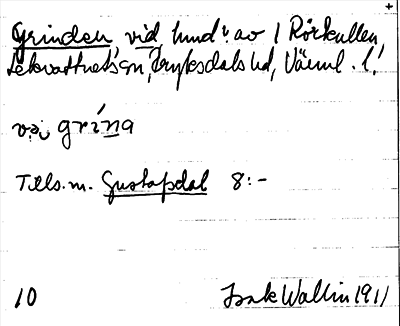 Grinden vid lund av / Rörkullen
Lekvattnets sn, Fryksdals hd, Värml. l.
gri´na
Tills. m. Gustafsdal 8:-
10 Isak Wallin 1911